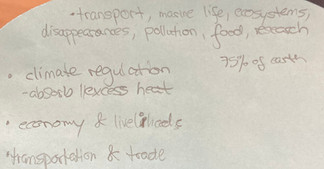 •transport, marine life, ecosystems,
disappearances, pollution, food, research
75% of earth
• climate regulation
-absorb excess heat
• economy & livelihoods
•transportation & trade